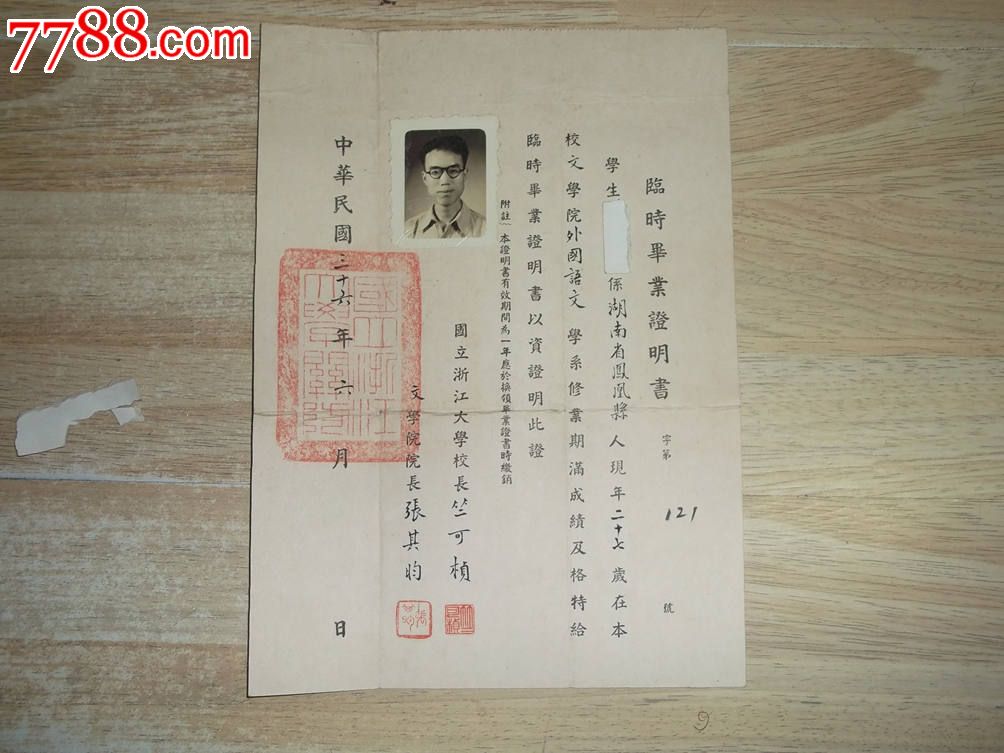 7788.com
臨時畢業證明書
字第 121 號
學生 係湖南省鳳凰縣人現年二十七歲在本
校文學院外國語文學系修業期滿成績及格特給
臨時畢業證明書以資證明此證
附註 本證明書有效期間為一年應於換領畢業證書時繳銷
國立浙江大學校長竺可楨
文學院院長張其昀
中華民國三十六年六月 日
9